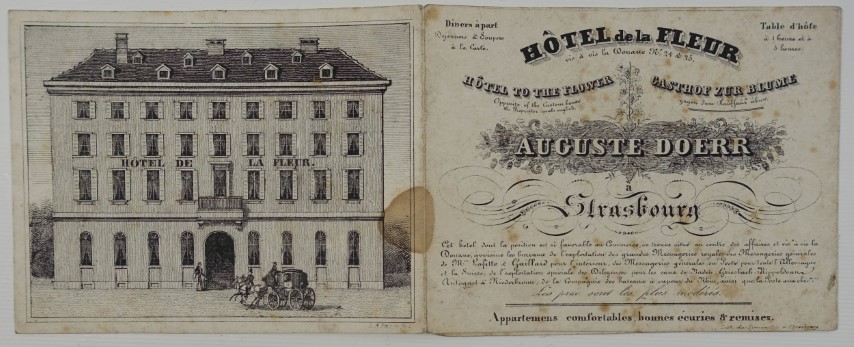 HÔTEL DE LA FLEUR.
Diners à part
Déjeuners & Soupers
à la Carte.
Table d'hôte
à 1 heure et à
5 heures.
HÔTEL de la FLEUR
vis à vis la Douane Nº 24 & 25.
HÔTEL TO THE FLOWER
Opposite of the Custom house
the Proprietor speaks english
GASTHOF ZUR BLUME
gegen dem Kaufhaus über.
AUGUSTE DOERR
à
Strasbourg
Cet hôtel dont la position est si favorable au Commerce, se trouve situé au centre des affaires et vis à vis la
Douane, avoisine les bureaux de l'exploitation des grandes Messageries royales des Messageries générales
de Mrs Lafitte & Gaillard pour l'intérieur, des Messageries générales du Poste pour toute l'Allemagne
et la Suisse, de l'exploitation spéciale des Diligences pour les eaux de Bade, Griesbach Rippoldsau,
Antogast & Niederbronn, de la Compagnie des bateaux à vapeur du Rhin, ainsi que la Poste aux
Les prix sont les plus modérés.
Appartemens comfortables, bonnes écuries & remises.